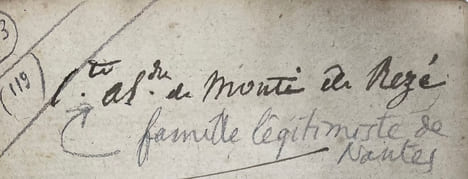 3
(119)
Cte Aldre de Monti de Rezé
famille légitimiste de
Nantes